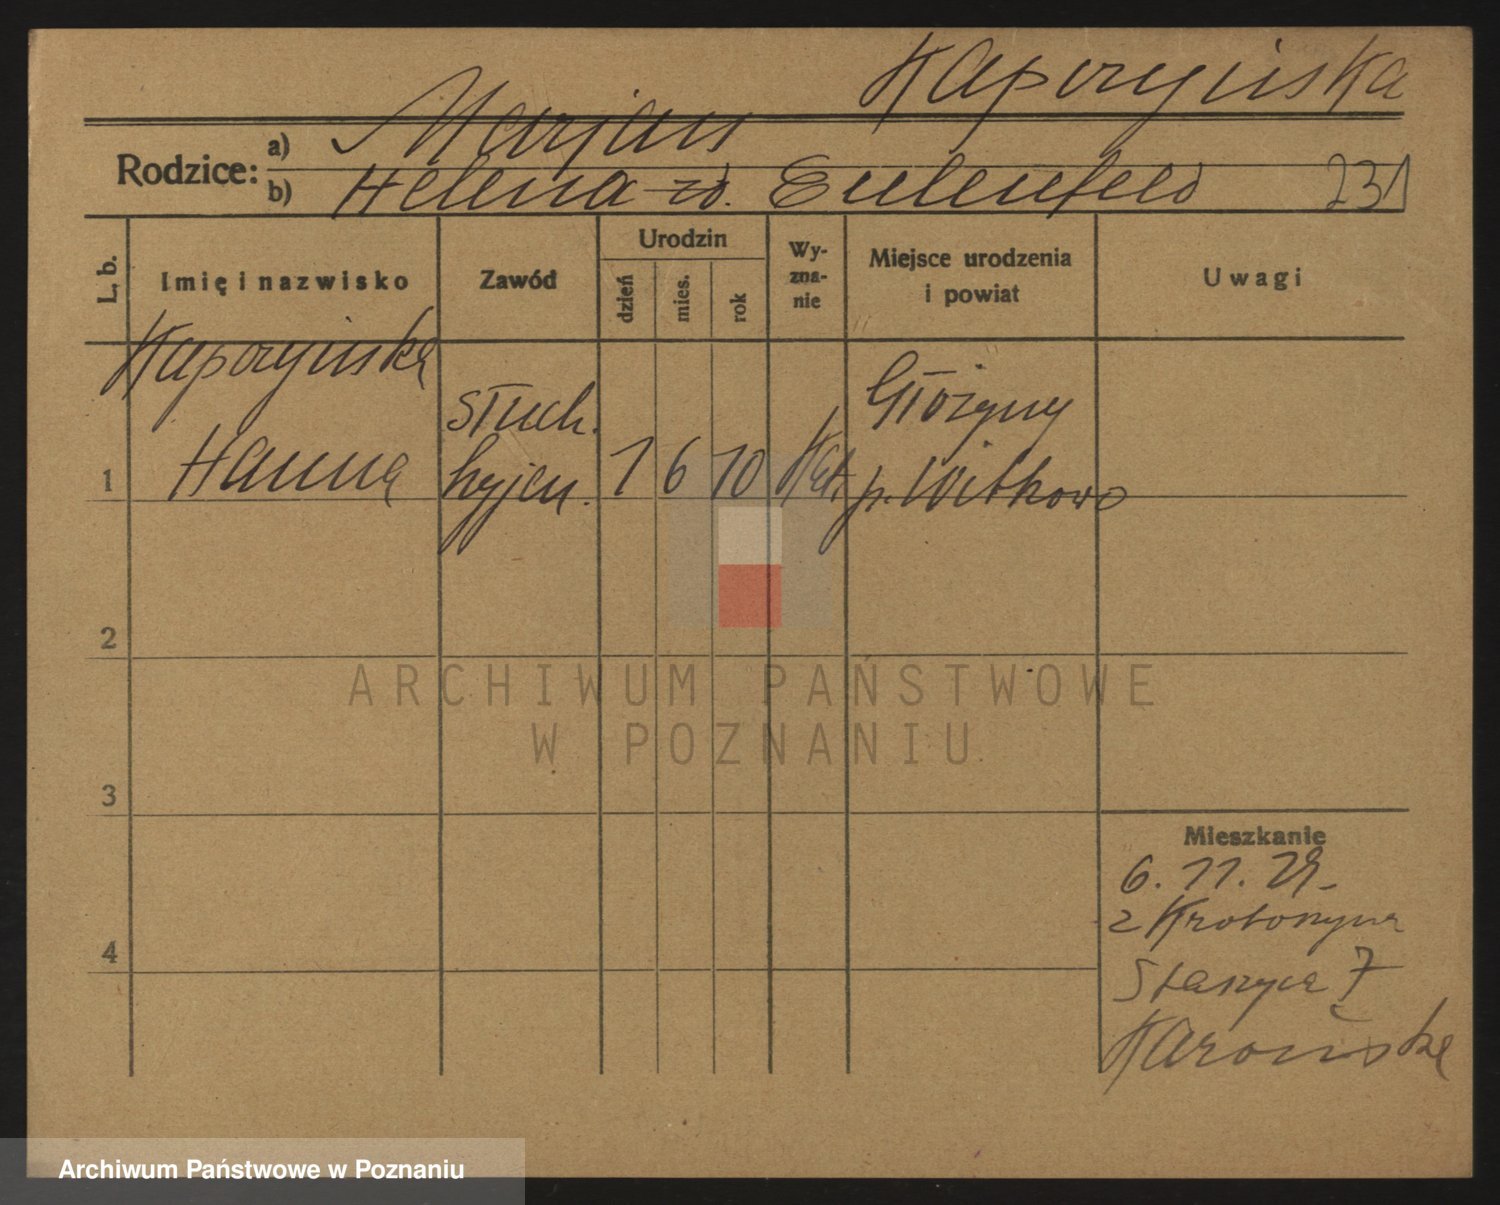 Kapczyńska
Rodzice: a) Marjan
b) Helena zd. Eulenfeld 231
L. b.
Imię i nazwisko
Zawód
Urodzin
dzień
mies.
rok
Wy-
zna-
nie
Miejsce urodzenia
i powiat
Uwagi
Kapczyńska
Hanna
słuch.
hyjen.
1
1 6 10
Kat.
Głożyny
p. Witkowo
2
3
4
Mieszkanie
6. 11. 29.
z Krotoszyna
Staszyca 7
ARCHIWUM PAŃSTWOWE
W POZNANIU
Archiwum Państwowe w Poznaniu